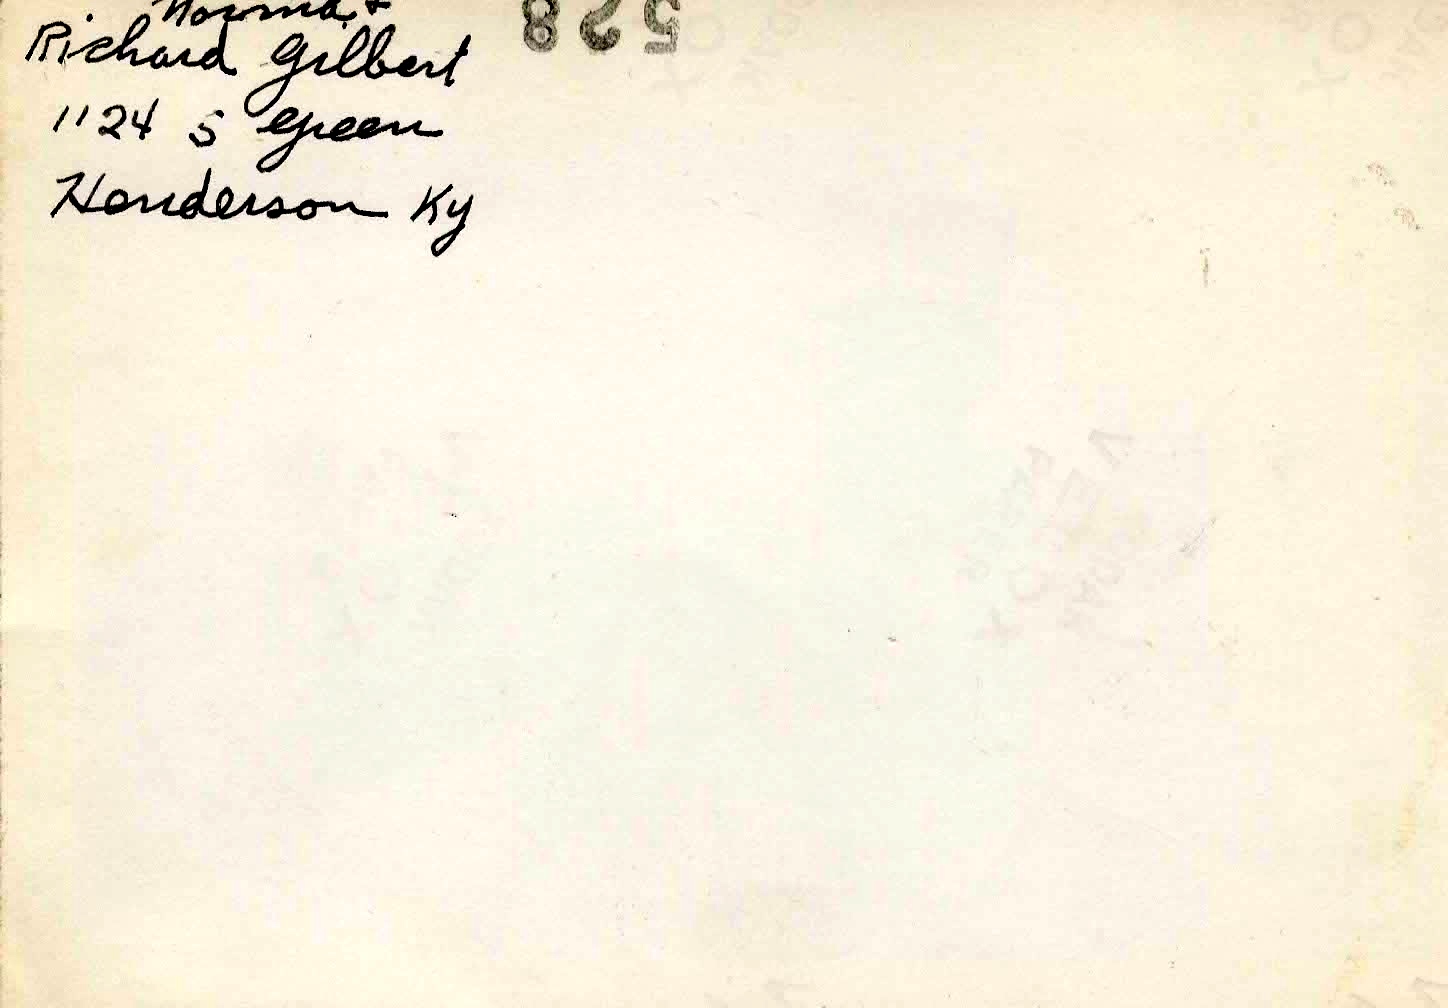 Norma +
Richard Gilbert
1124 S Green
Henderson Ky
528